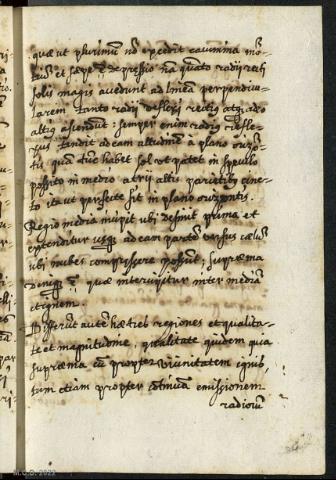 quæ ut plurimum nõ excedit cacumina mõ-
tiũ, et sæpe depressior nã quãto radii recti
solis magis accedunt ad lineã perpendicu-
larem tanto radii reflexi rectiq atq adeo
altiq ascendunt: semper enim radiq refle-
xus tendit ad eam altitudinẽ à plano orizõ-
tis quã tũc habet sol ut patet in speculo
posito in medio atrii altis parietibq cinc-
to ita ut perfecte sit in plano orizontis.
Regio media incipit ubi desinit prima et
extenditur usq ad eam partẽ versus cælũ
ubi nubes compressere possunt; supræma
deniq ẽ, quæ interiicitur inter mediã
et ignem.
Differũt autẽ hæ tres regiones et qualita-
te et magnitudine, qualitate quidem quia
supræma cũ propter vicinitatem ignis,
tum etiam propter cõtinuã emissionem
radiorũ
M.C.D. 2022